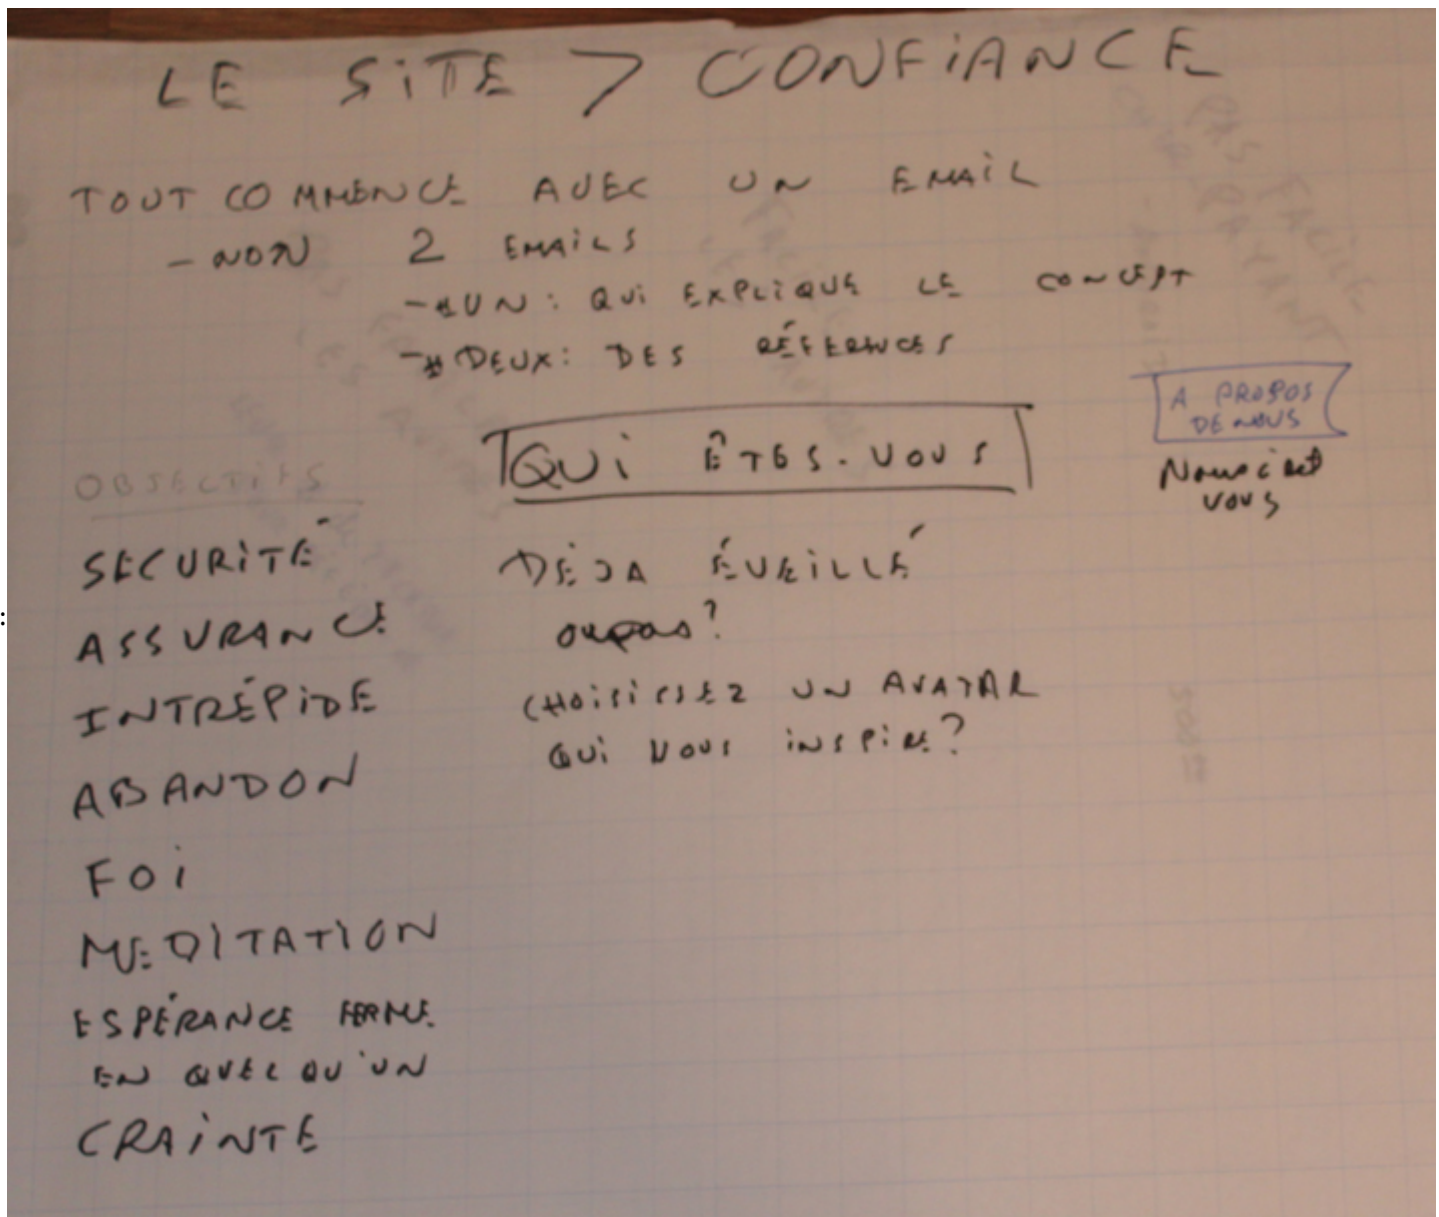 LE SiTE > CONFiANCE
TOUT COMMENCE AVEC UN EMAiL
- NON 2 EMAiLS
- UN : QUi EXPLiQUE LE CONCEPT
- DEUX : DES RÉFÉRENCES
A PROPOS
DE NOUS
QUi ÊTES-VOUS
Nous c'est
VOUS
OBJECTiFS
SECURiTÉ
ASSURANCE
INTRÉPiDE
ABANDON
FOi
MEDITATION
ESPÉRANCE FERME
EN QUELQU'UN
CRAiNTE
DÉJA ÉVEiLLÉ
ou pas ?
CHOiSiSSEZ UN AVATAR
QUi VOUS iNSPiRE ?
: